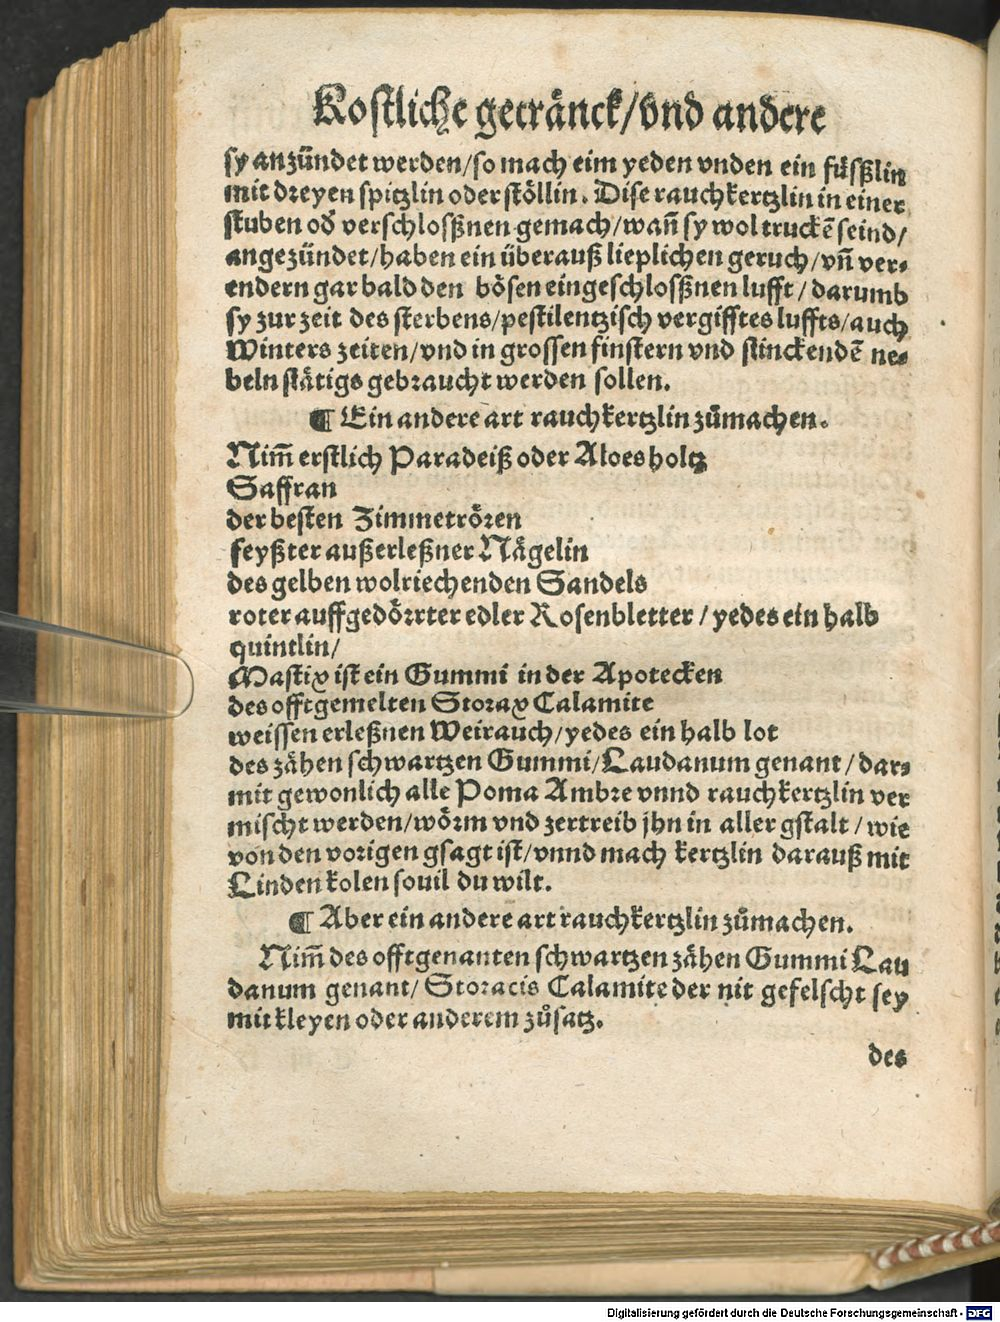 Kostliche getränck/vnd andere
sy anzündet werden/so mach eim yeden vnden ein füßlin
mit dreyen spitzlin oder stöllin. Dise rauchkertzlin in einer
stuben od̄ verschloßnen gemach/wañ sy wol truckē seind/
angezündet/haben ein überauß lieplichen geruch/vñ ver⸗
endern gar bald den bösen eingeschloßnen lufft/darumb
sy zur zeit des sterbens/pestilentzisch vergifftes luffts/auch
Winters zeiten/vnd in grossen finstern vnd stinckendē ne⸗
beln stätigs gebraucht werden sollen.
¶ Ein andere art rauchkertzlin zůmachen.
Nim̄ erstlich Paradeiß oder Aloes holtz
Saffran
der besten Zimmetrören
feyßter außerleßner Nägelin
des gelben wolriechenden Sandels
roter auffgedörrter edler Rosenbletter/yedes ein halb
quintlin/
Mastix ist ein Gummi in der Apotecken
des offtgemelten Storax Calamite
weissen erleßnen Weirauch/yedes ein halb lot
des zähen schwartzen Gummi/Laudanum genant/dar⸗
mit gewonlich alle Poma Ambre vnnd rauchkertzlin ver
mischt werden/wörm vnd zertreib jhn in aller gstalt/wie
von den vorigen gsagt ist/vnnd mach kertzlin darauß mit
Linden kolen souil du wilt.
¶ Aber ein andere art rauchkertzlin zůmachen.
Nim̄ des offtgenanten schwartzen zähen Gummi Lau
danum genant/Storacis Calamite der nit gefelscht sey
mit kleyen oder anderem zůsatz.
des
Digitalisierung gefördert durch die Deutsche Forschungsgemeinschaft - DFG